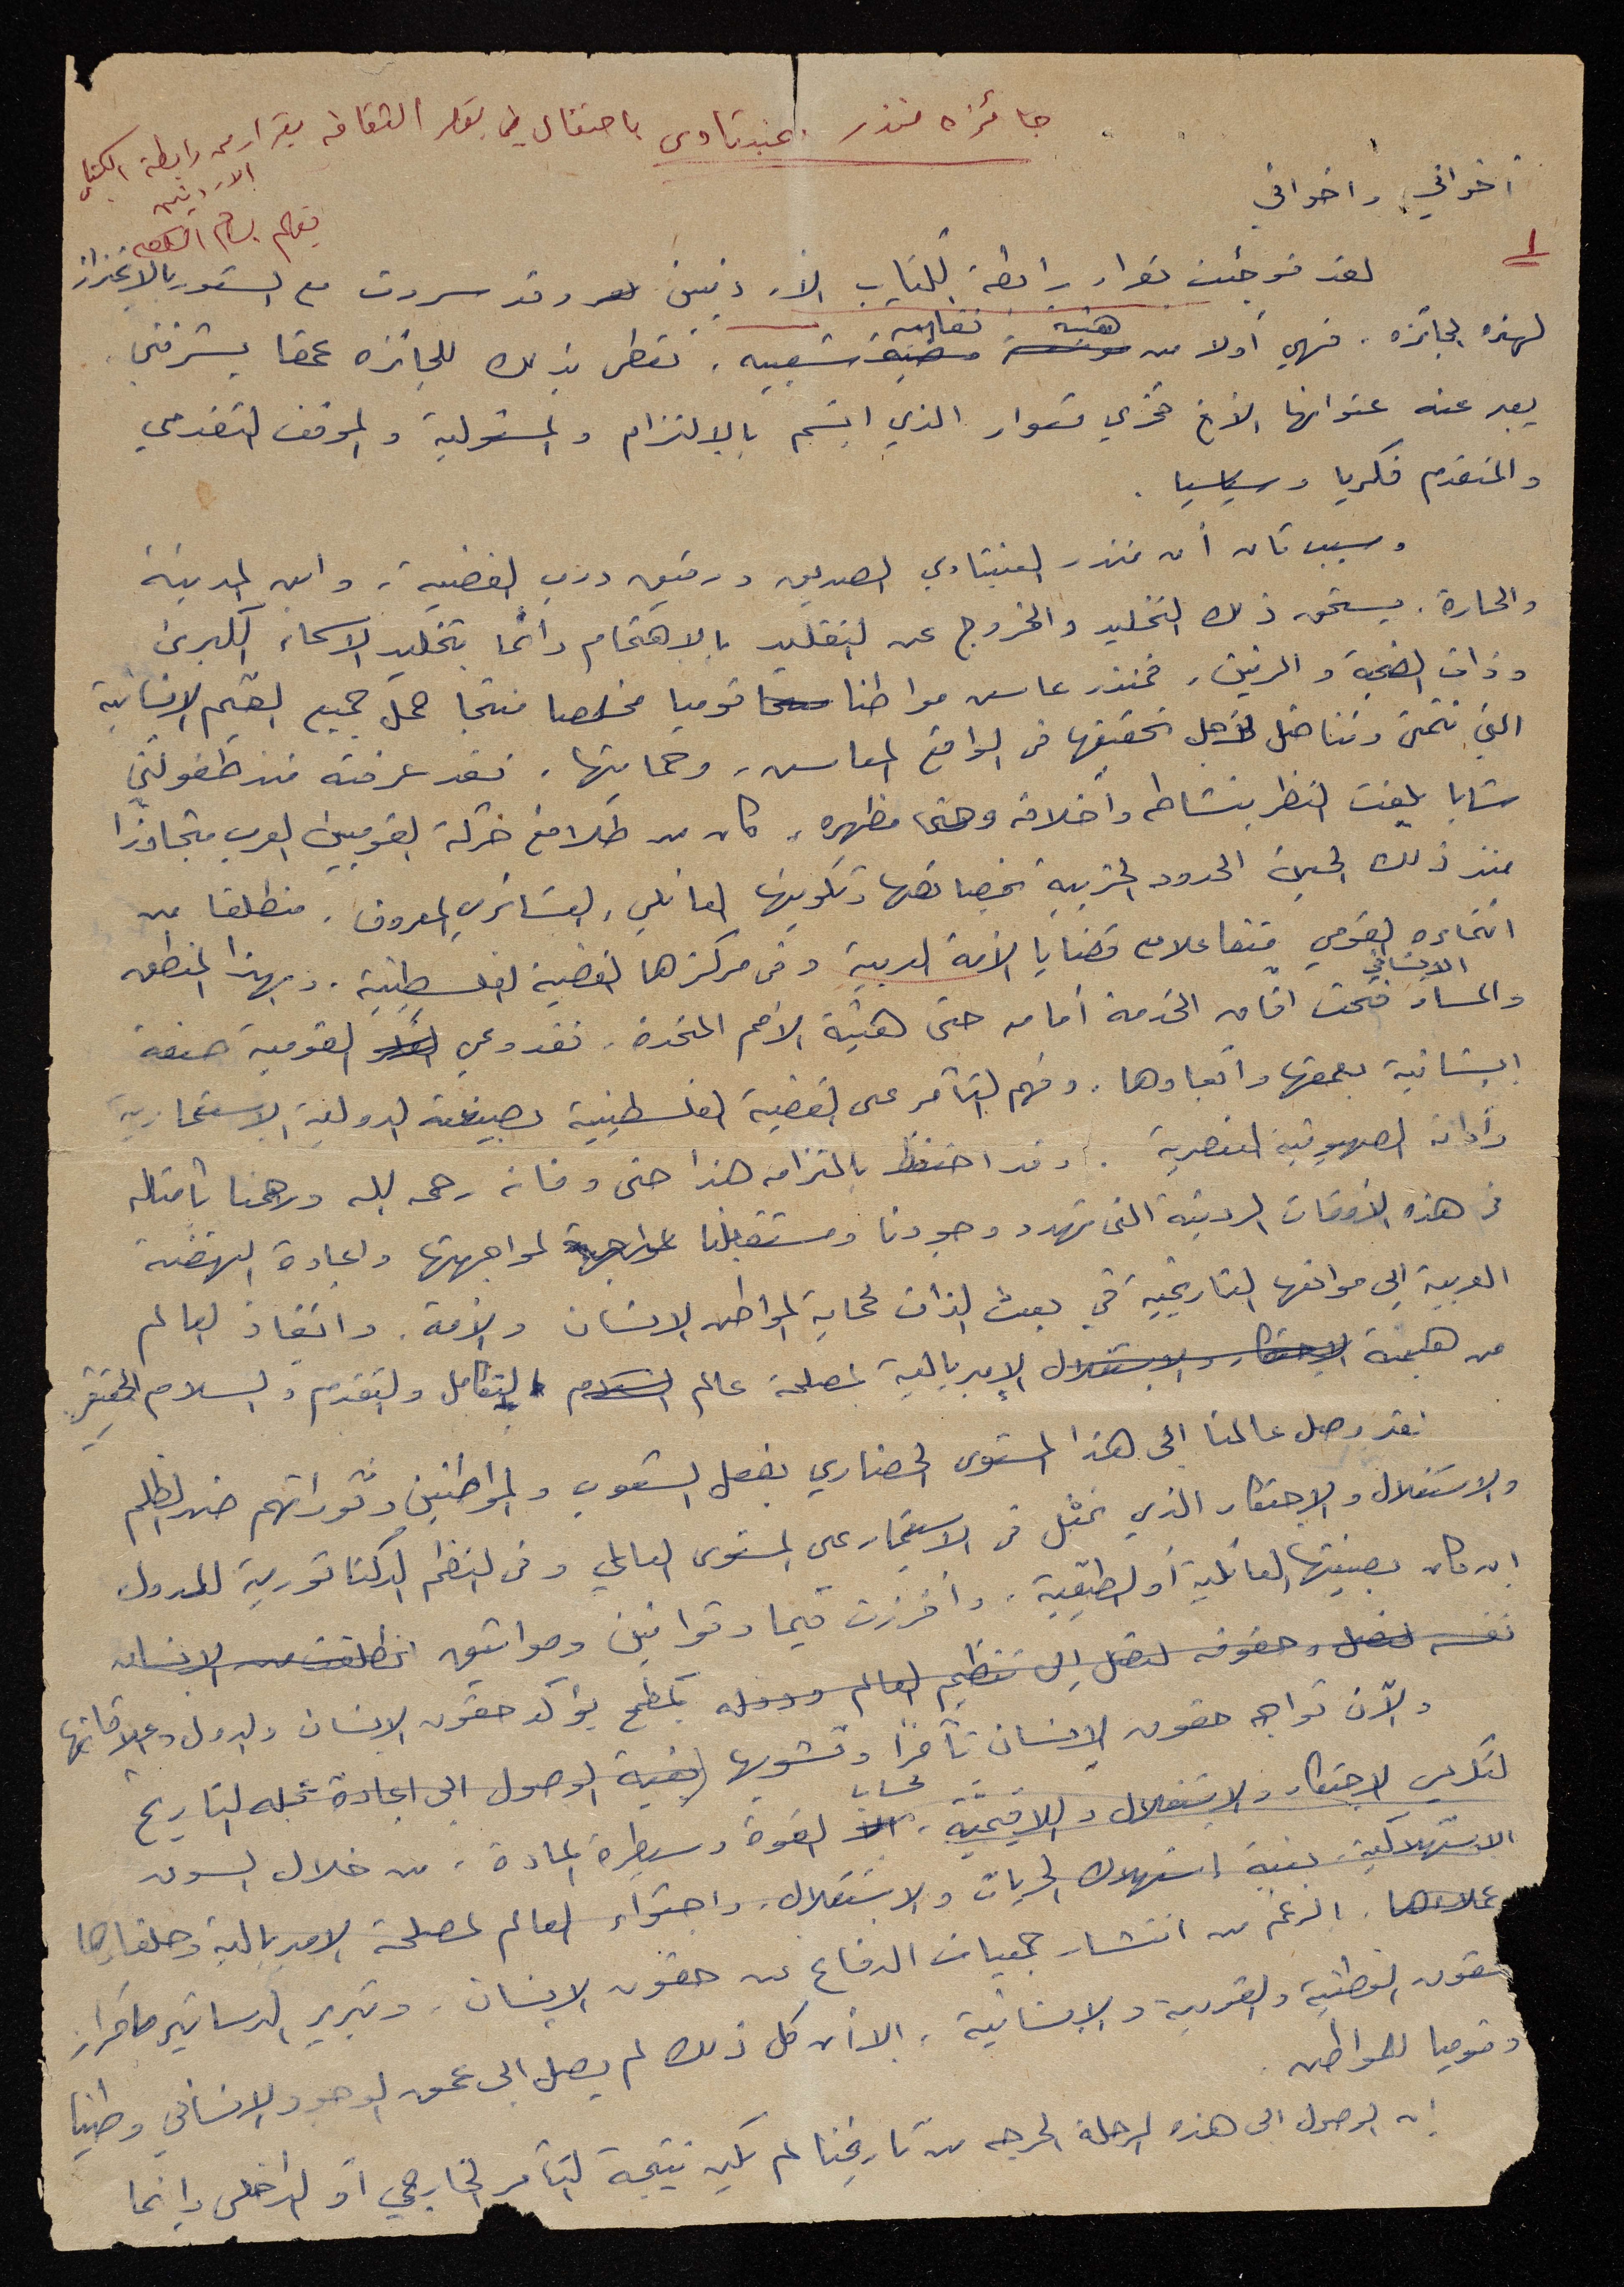 جائزه منذر عنبتاوي باحتفال في بقرار من رابطة الكتاب
الاردنيين
بقلم
أخواتي واخواني
1
لقد فوجئت بقرار رابطة الكتاب الاردنيين وقد سررت مع الشعور بالاعتزاز
هيئة نقابية
لهذه الجائزه. فهي أولا من شعبيه، تعطي بذلك للجائزه عمقا يشرفني.
يعبر عنه عنوانها الأخ فخري قعوار الذي اتسم بالالتزام والمسئولية والموقف التقدمي
والمتقدم فكريا وسياسيا.
وسبب ثان أن منذر العنبتاوي الصديق ورفيق درب القضية، وابن المدينة
والحارة. يستحق ذلك التخليد والخروج عن التقليد بالاهتمام دائما بتخليد الاسماء الكبرى
وذات الضجة والرنين، فمنذر عاش مواطنا قوميا مخلصا منتجا حمل جميع القيم الانسانية
التي نتمنى ونناضل لأجل تحقيقها في الواقع المعاش، وحمايتها. فقد عرفته منذ طفولتي
شابا يلفت النظر بنشاطه وأخلاقه وحتى مظهره. كان من طلائع حركة القوميين العرب متجاوزا
منذ ذلك الحين الحدود الحزبية بخصائصها وتكوينها العائلي، العشائري المعروف. منطلقا من
انتماءه القومي متفاعلا مع قضايا الأمة العربية وفي مركزها القضية الفلسطينية. وبهذا المنطق
الانساني
والمسار فتحت افاق الخدمة أمامه حتى هيئة الأمم المتحدة. فقد وعي القومية صفة
انسانية بعمقها وأبعادها. وفهم التآمر على القضية الفلسطينية بصيغته الدولية الاستعمارية
وأداته الصهيونية العنصرية. وقد احتفظ بالتزامه هذا حتى وفاته رحمه الله ورحمنا بأمثاله
في هذه الأوقات الرديئة التي تهدد وجودنا ومستقبلنا لمواجهتها واعادة النهضة
العربية إلى مواقعها التاريخية في بعث الذات لحماية المواطن الانسان والأمة. وانقاذ العالم
من هيمنة الاحتكار والاستغلال الامبريالية لمصلحة عالم السلام التكامل والتقدم والسلام الحقيقي.
لقد وصل عالمنا الى هذا المستوى الحضاري بفضل الشعوب والمواطنين وثوراتهم ضد الظلم
والاستغلال والاحتكار الذي تمثل في الاستعمار على المستوى العالمي وفي النظم الدكتاتورية للدول
ان كان بصيغتها العائلية أو الطبقية. وأفرزت قيما وقوانين ومواثيق انطلقت من الانسان
نفسه لتصل وحقوقه لتصل إلى تنظيم العالم ودوله كمطمح يؤكد حقوق الانسان والدول وعلاقاتها
والآن تواجه حقوق الانسان تآمرا وتشويها بغية الوصول الى اعادة عجلة التاريخ
لحساب
لتكريس الاحتكار والاستغلال واللاقيمية، القوة وسيطرة المادة، من خلال السوق
الاستهلاكية، بغية استهلاك الحريات والاستقلال، واحتواء العالم لمصلحة الامبريالية وحلفاءها
عملاءها. الرغم من انتشار جمعيات الدفاع عن حقوق الانسان، وتبرير الدساتير
حقوق الوطنية والقومية والانسانية. الا أن كل ذلك لم يصل الى عمق الوجود الانساني وطنيا
وقوميا للمواطن.
إن الوصول الى هذه المرحلة الحرجه من تاريخنا لم يكن نتيجة التآمر الخارجي أو الداخلي وإنما